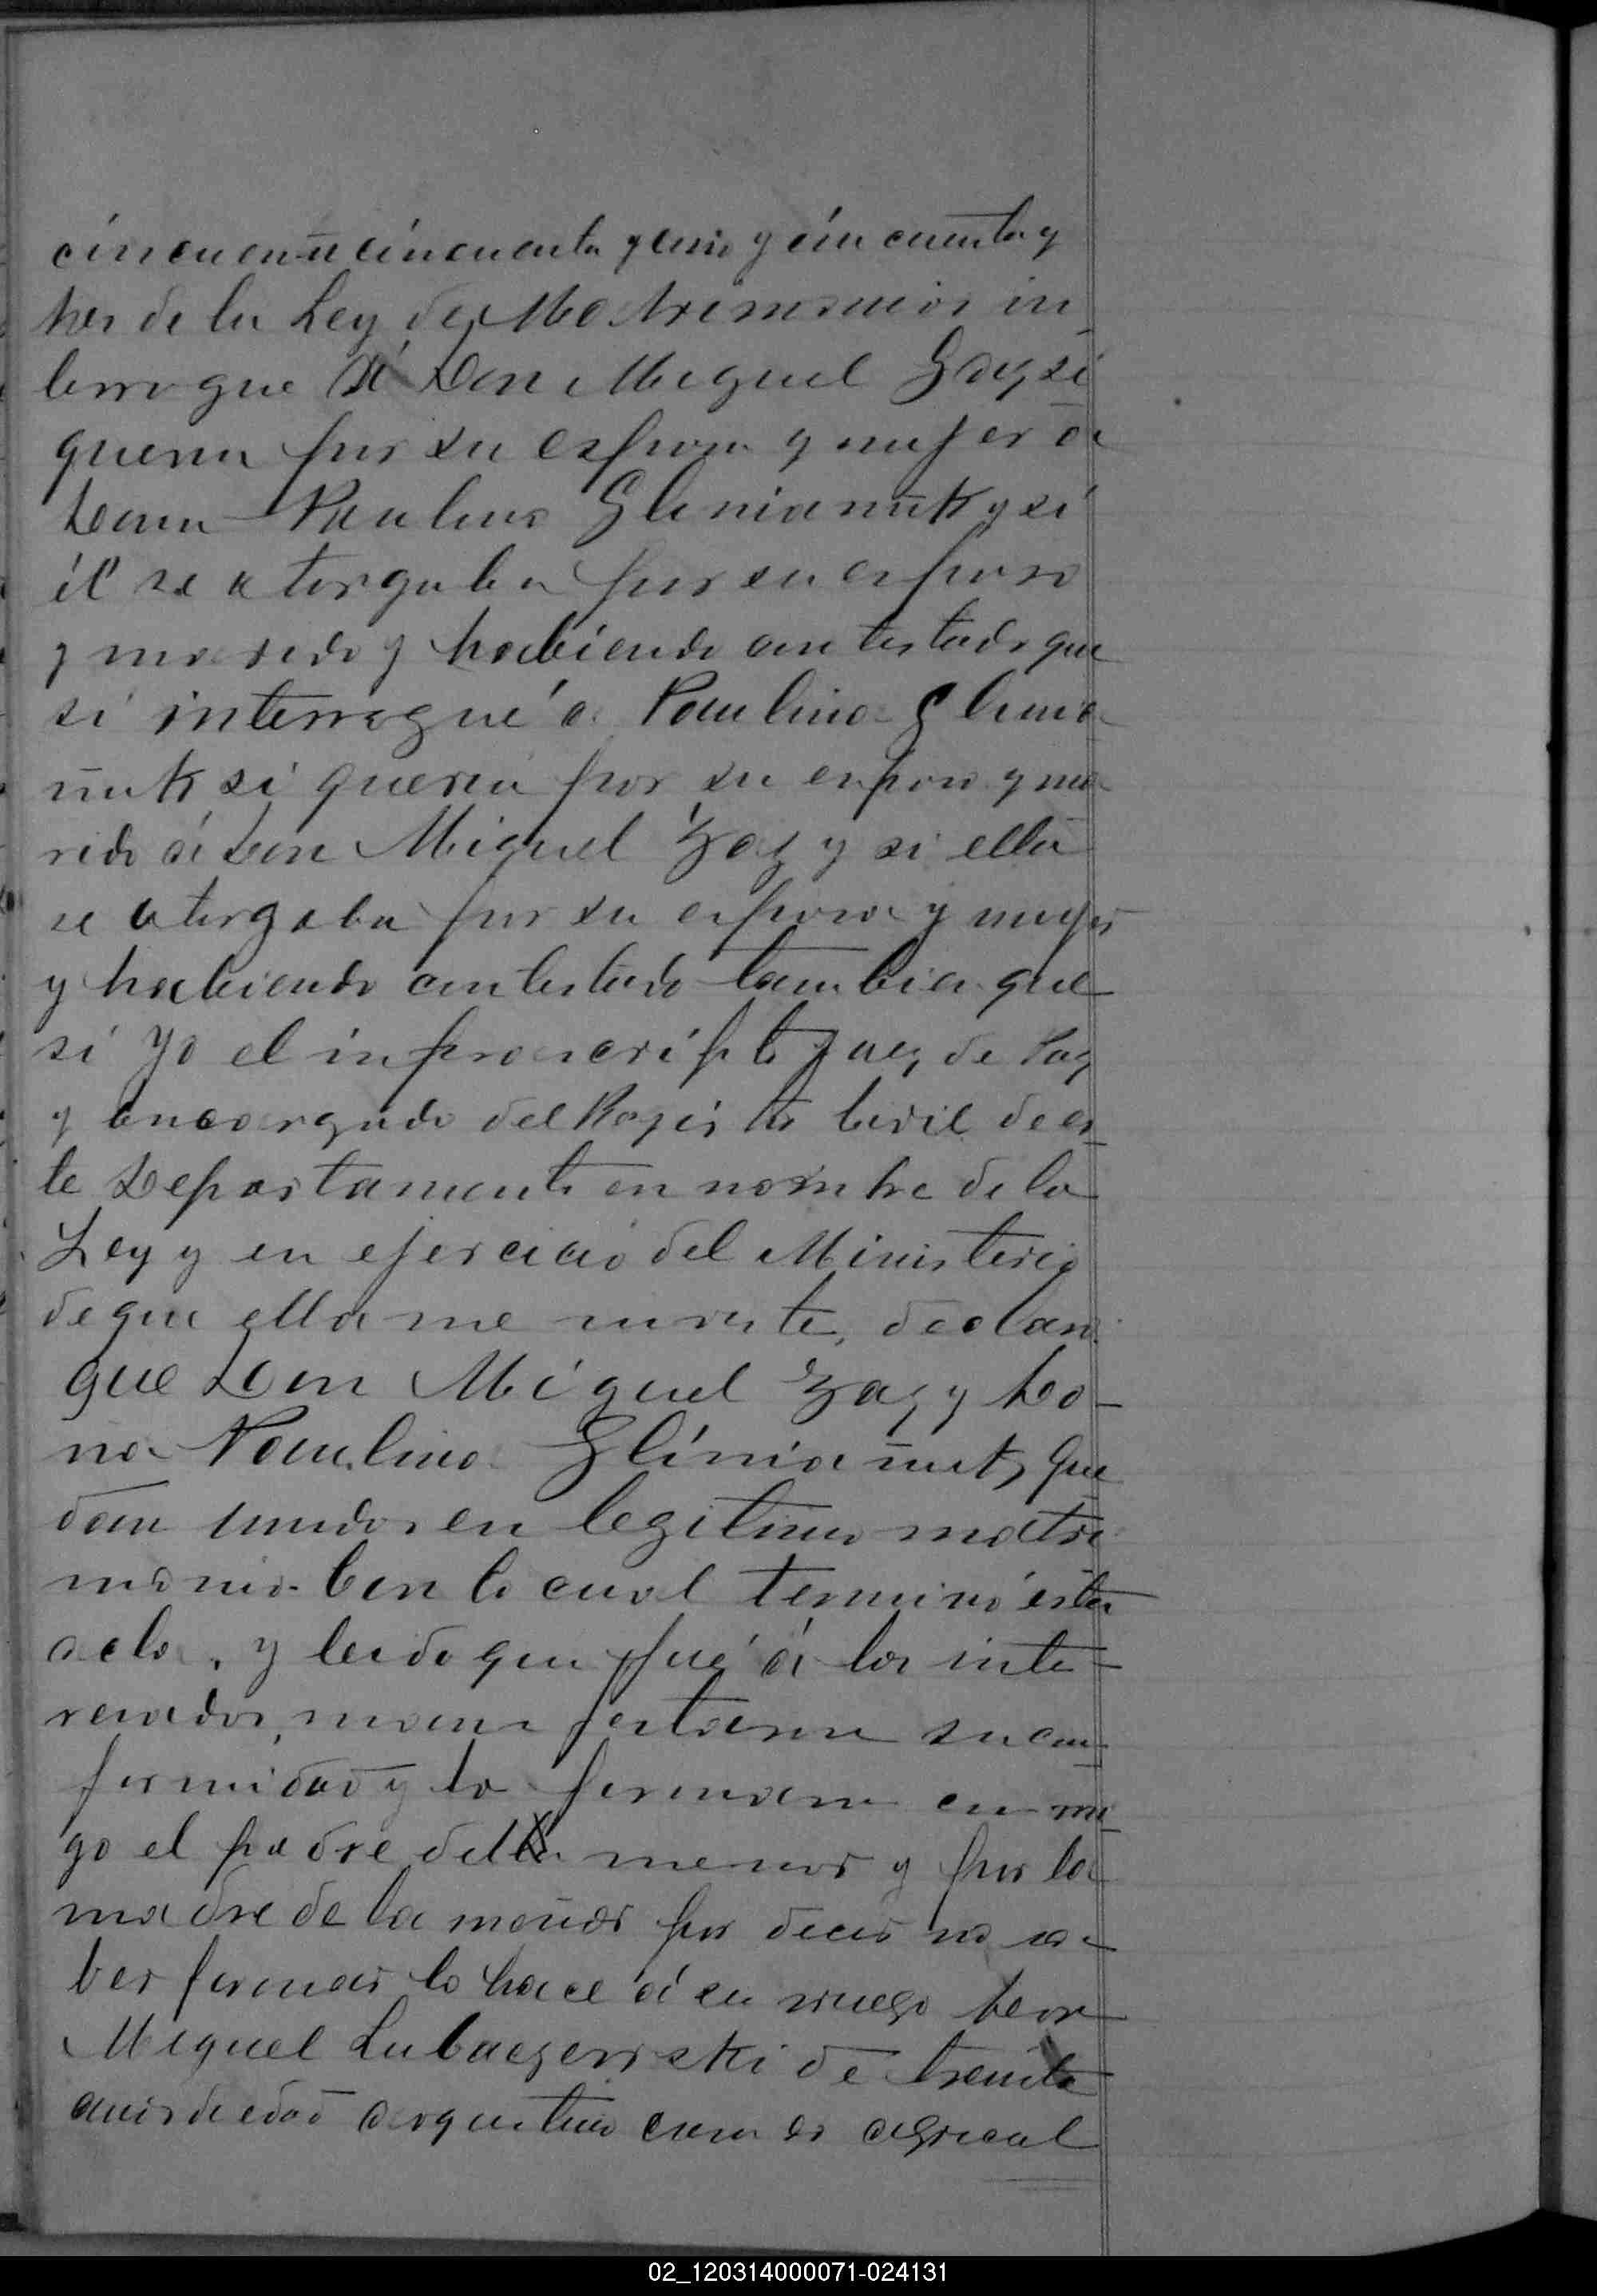 cincuenta cincuenta y uno y cincuenta y
tres de la Ley de Matrimonios in-
terrogué á Don Miguel Zaz si
queria por su esposa y mujer a
Doña Paulina Gliniañuk y si
él se otorgaba por su esposo
y marido y habiendo contestado que
si interrogué a Paulina Glinia
ñuk si queria por su esposo y ma
rido á Don Miguel Zaz y si ella
se otorgaba por su esposa y mujer
y habiendo contestado tambien que
si Yo el infrascripto Juez de Paz
y encargado del Registro Civil de es-
te Departamento en nombre de la
Ley y en ejercicio del Ministerio
de que ella me inviste, declaro
que Don Miguel Zaz y Do-
ña Paulina Gliniañuk, que
dan unidos en legitimo matri
monio. Con lo cual terminó esta
acta, y leido que fué á los inte-
resados, manifestaron su con-
formidad y la firmaron con mi
go el padre del menor y por la
madre de la menor por decir no sa-
ber firmar lo hace á su ruego Don
Miguel Lubaczewski de treinta
años de edad argentino casado agricul
02_120314000071-024131